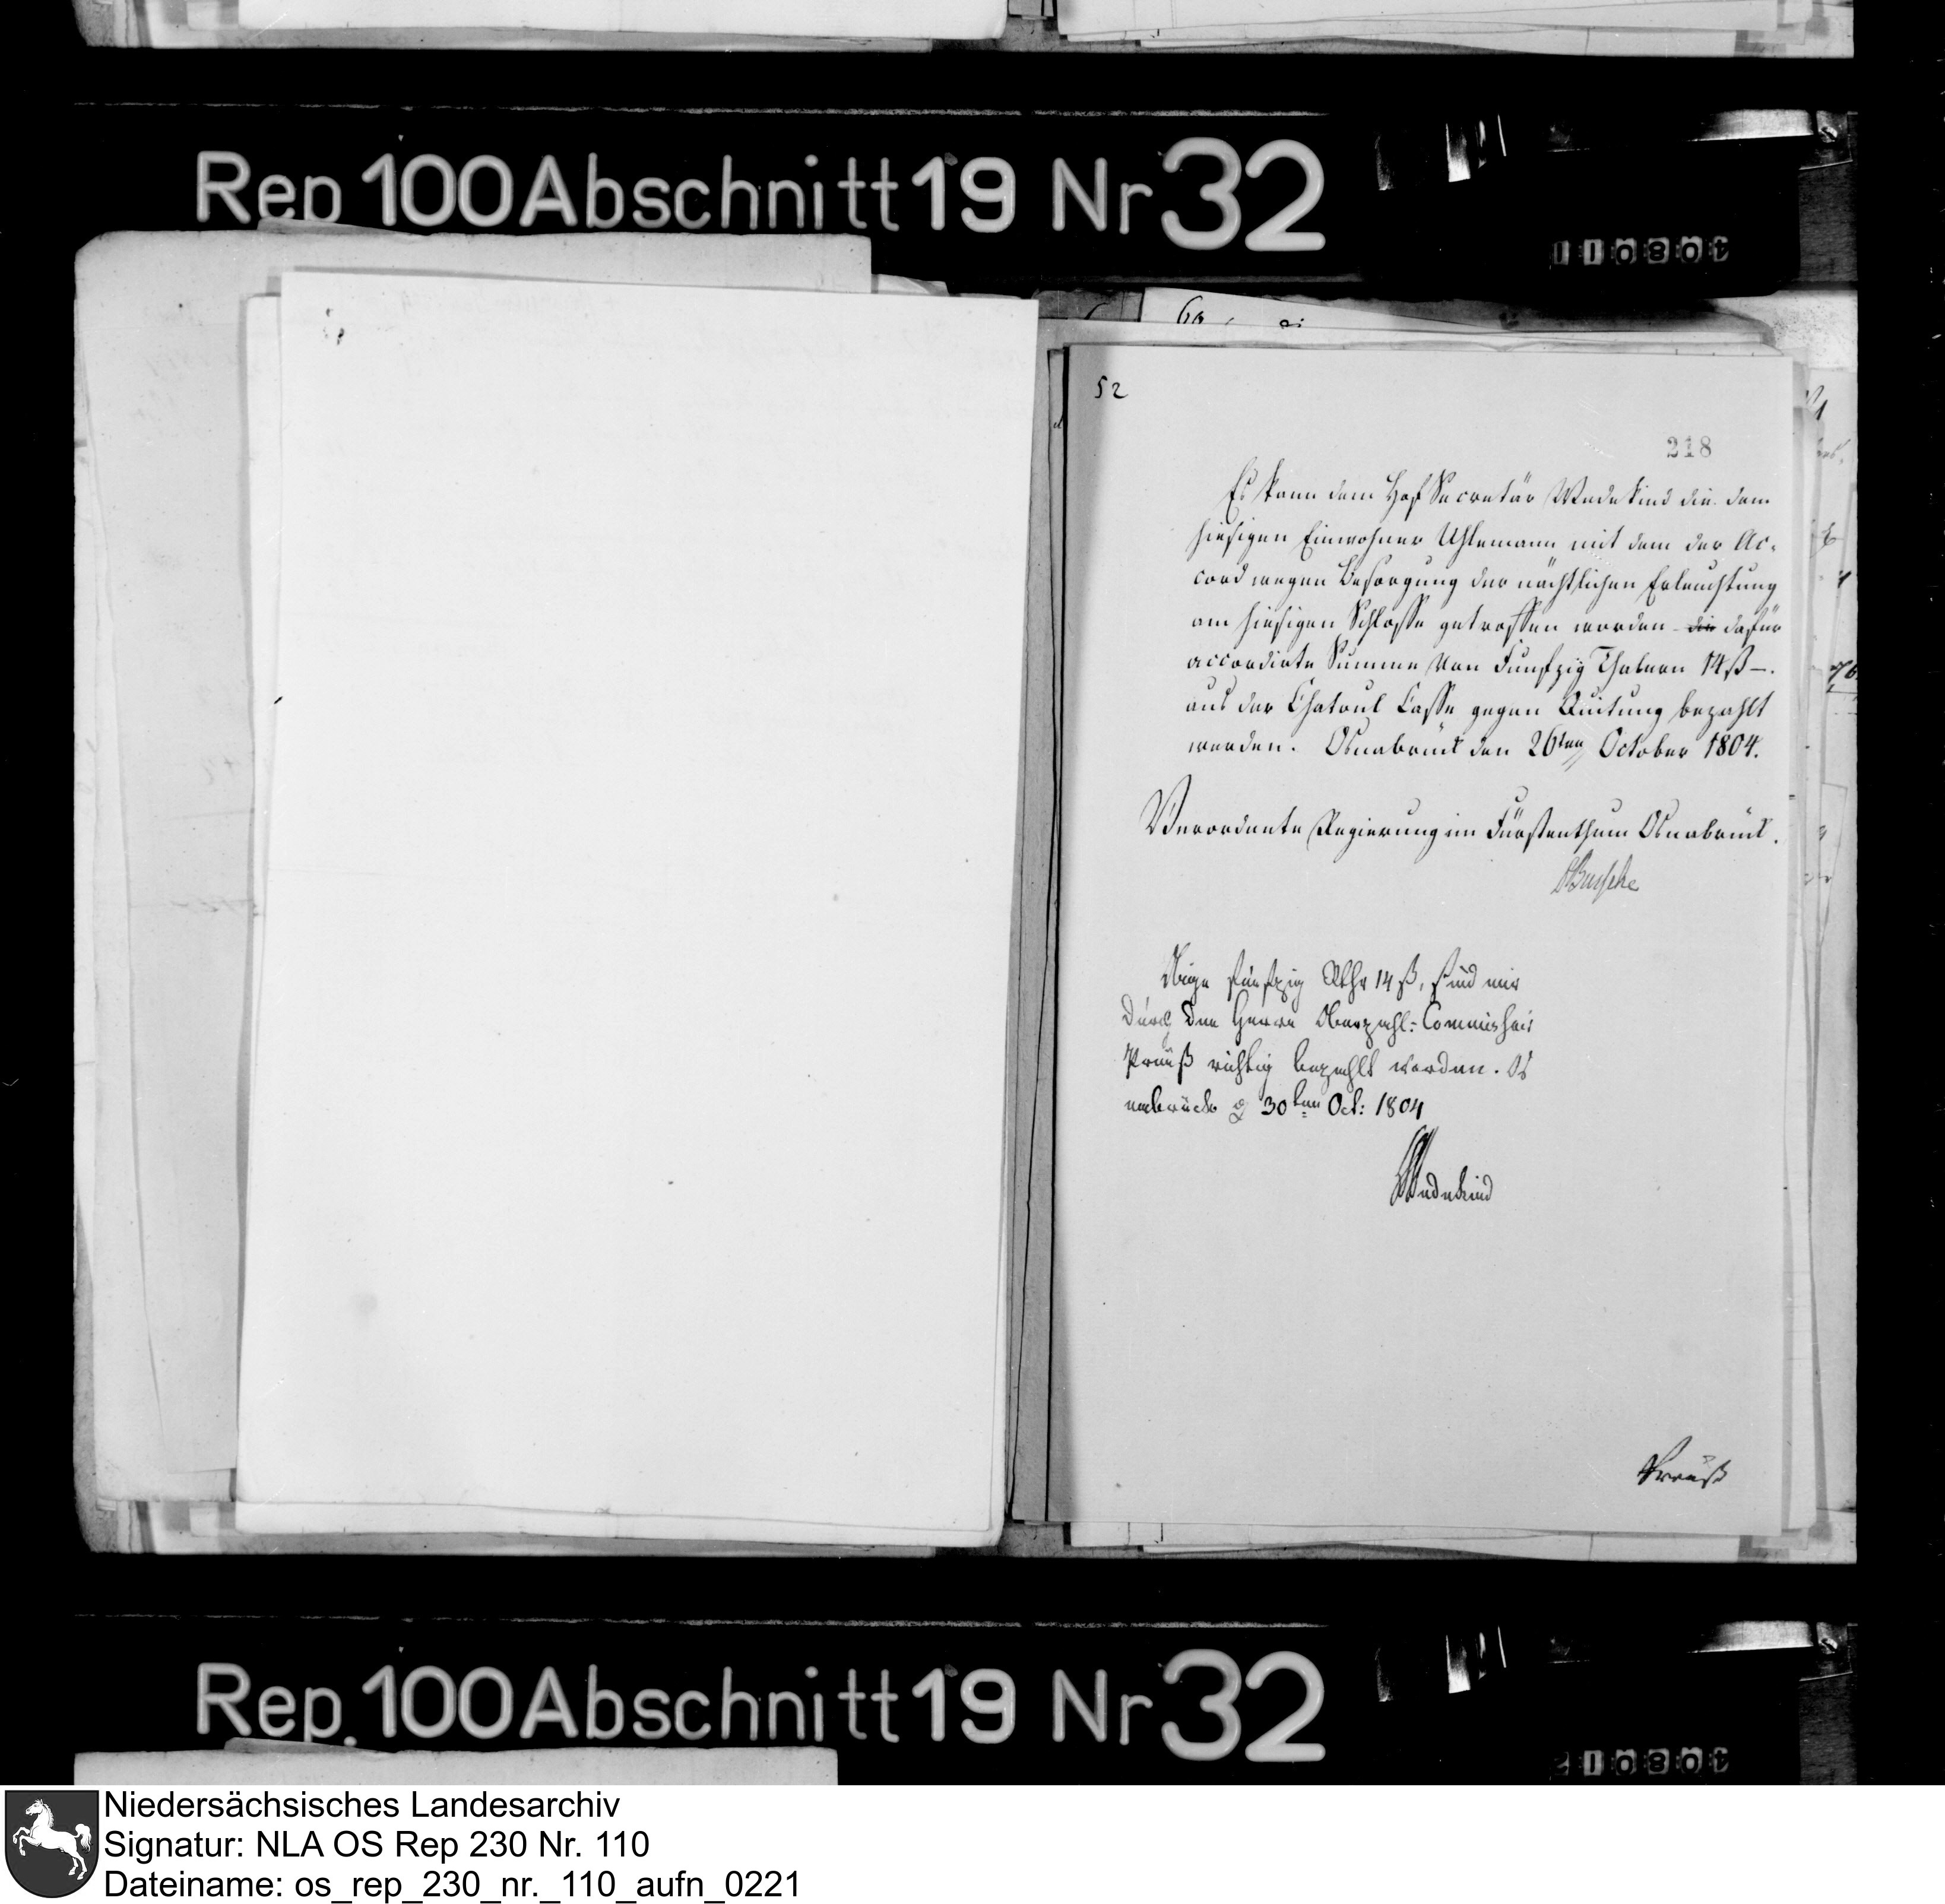 Rep 100 Abschnitt 19 Nr 32
52
218
Es kann dem HofSecretär Wedekind die dem
hiesigen Einwohner Uhlemann mit dem der Ac-
cord wegen Besorgung der nächtlichen Erleuchtung
am hiesigen Schlosse getroffen worden die dafür
accordirte Summe von Funfzig Thalern 14 ß –.
aus der Chatoul Casse gegen Quitung bezahlt
werden. Osnabrück den 26ten October 1804.
Verordnete Regierung im Fürstenthum Osnabrück.
Bussche
Obige funfzig Rthr 14 ß, sind mir
durch den Herrn Oberzahl-Commissair
Preuß richtig bezahlt worden. Os
nabrück d 30ten Oct: 1804
Wedekind
Preuß
Rep. 100 Abschnitt 19 Nr 32
Niedersächsisches Landesarchiv
Signatur: NLA OS Rep 230 Nr. 110
Dateiname: os_rep_230_nr._110_aufn_0221